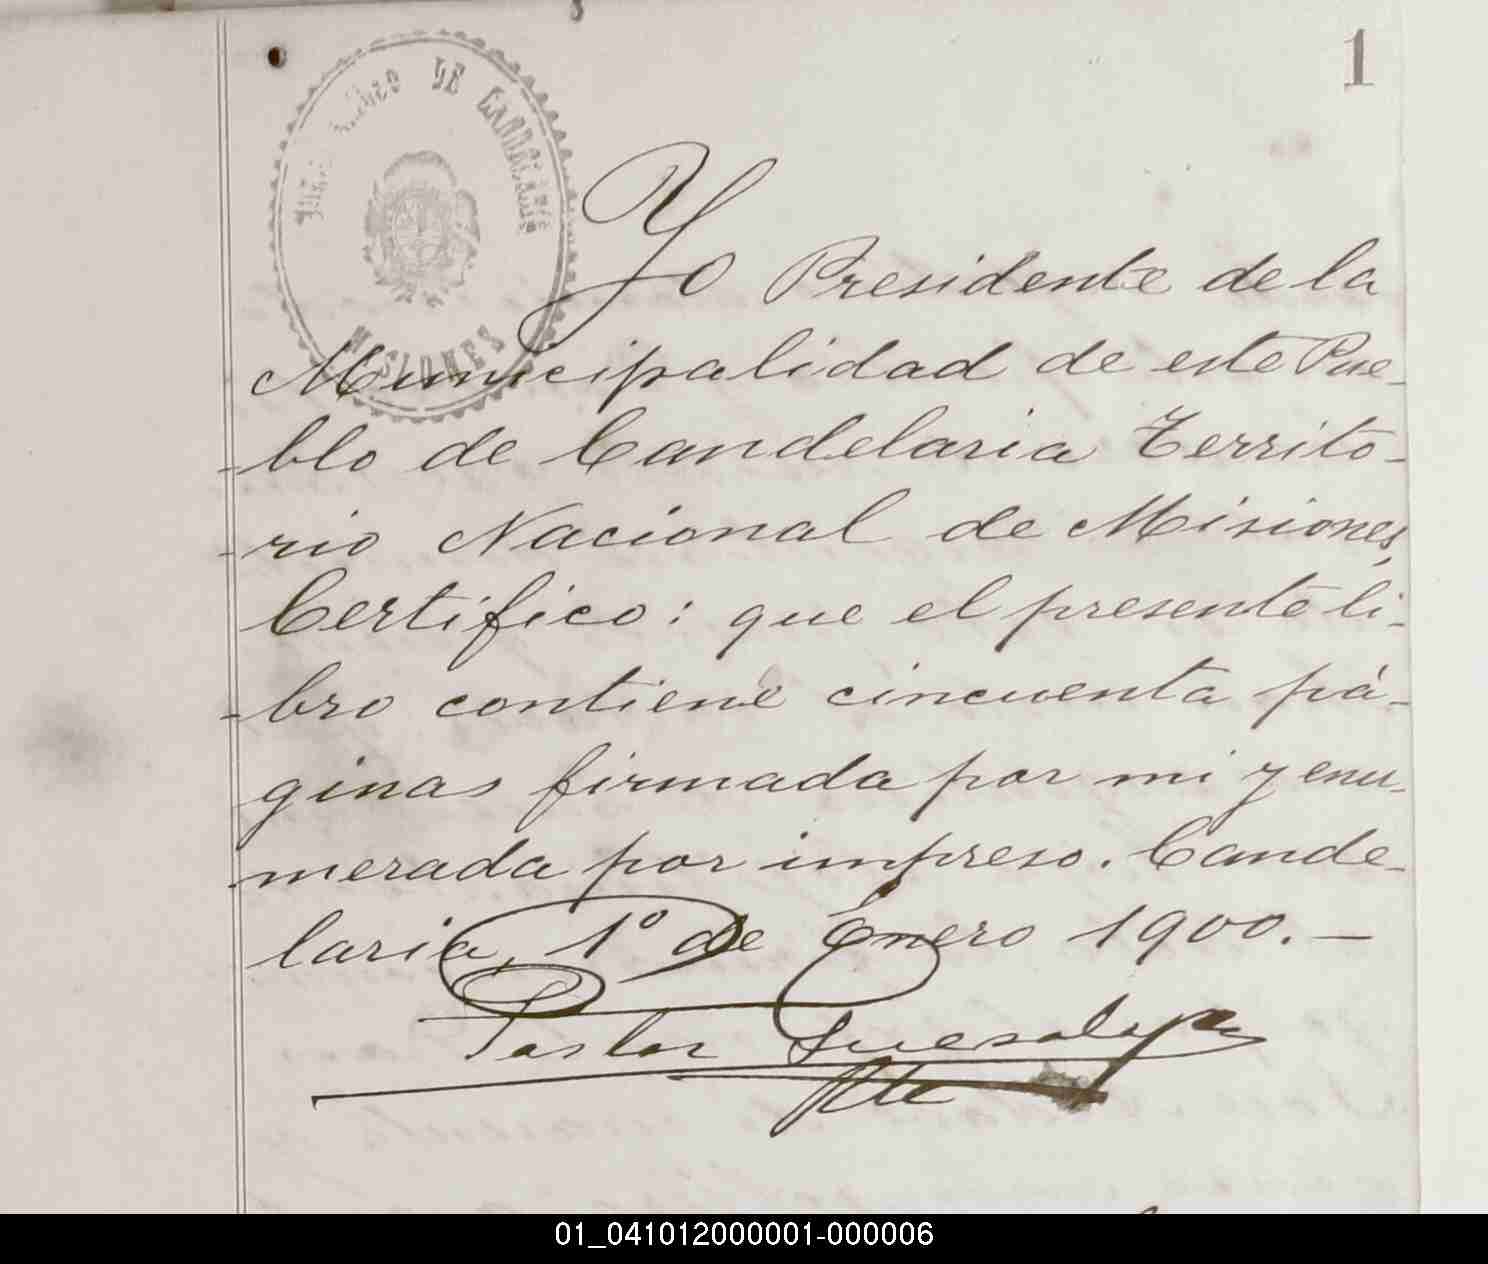 1
DE CANDELARIA
MISIONES
Yo Presidente de la
Municipalidad de este Pue-
blo de Candelaria Territo-
rio Nacional de Misiones,
Certifico: que el presente li-
bro contiene cincuenta pá-
ginas firmada por mi y enu-
merada por impreso. Cande-
laria, 1º de Enero 1900.—
Pastor
Pte
01_041012000001-000006